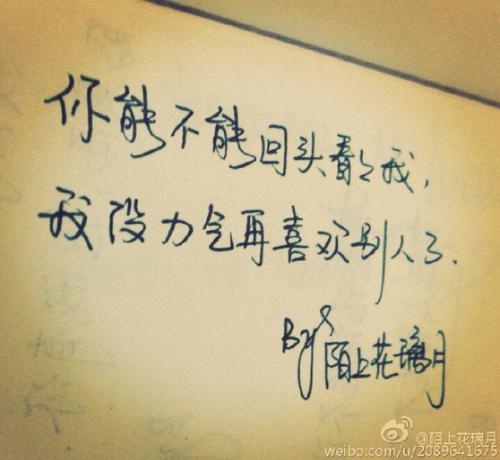 你能不能回头看看我,
我没力气再喜欢别人了.
By 陌上花璃月
@陌上花璃月
weibo.com/u/2089641675